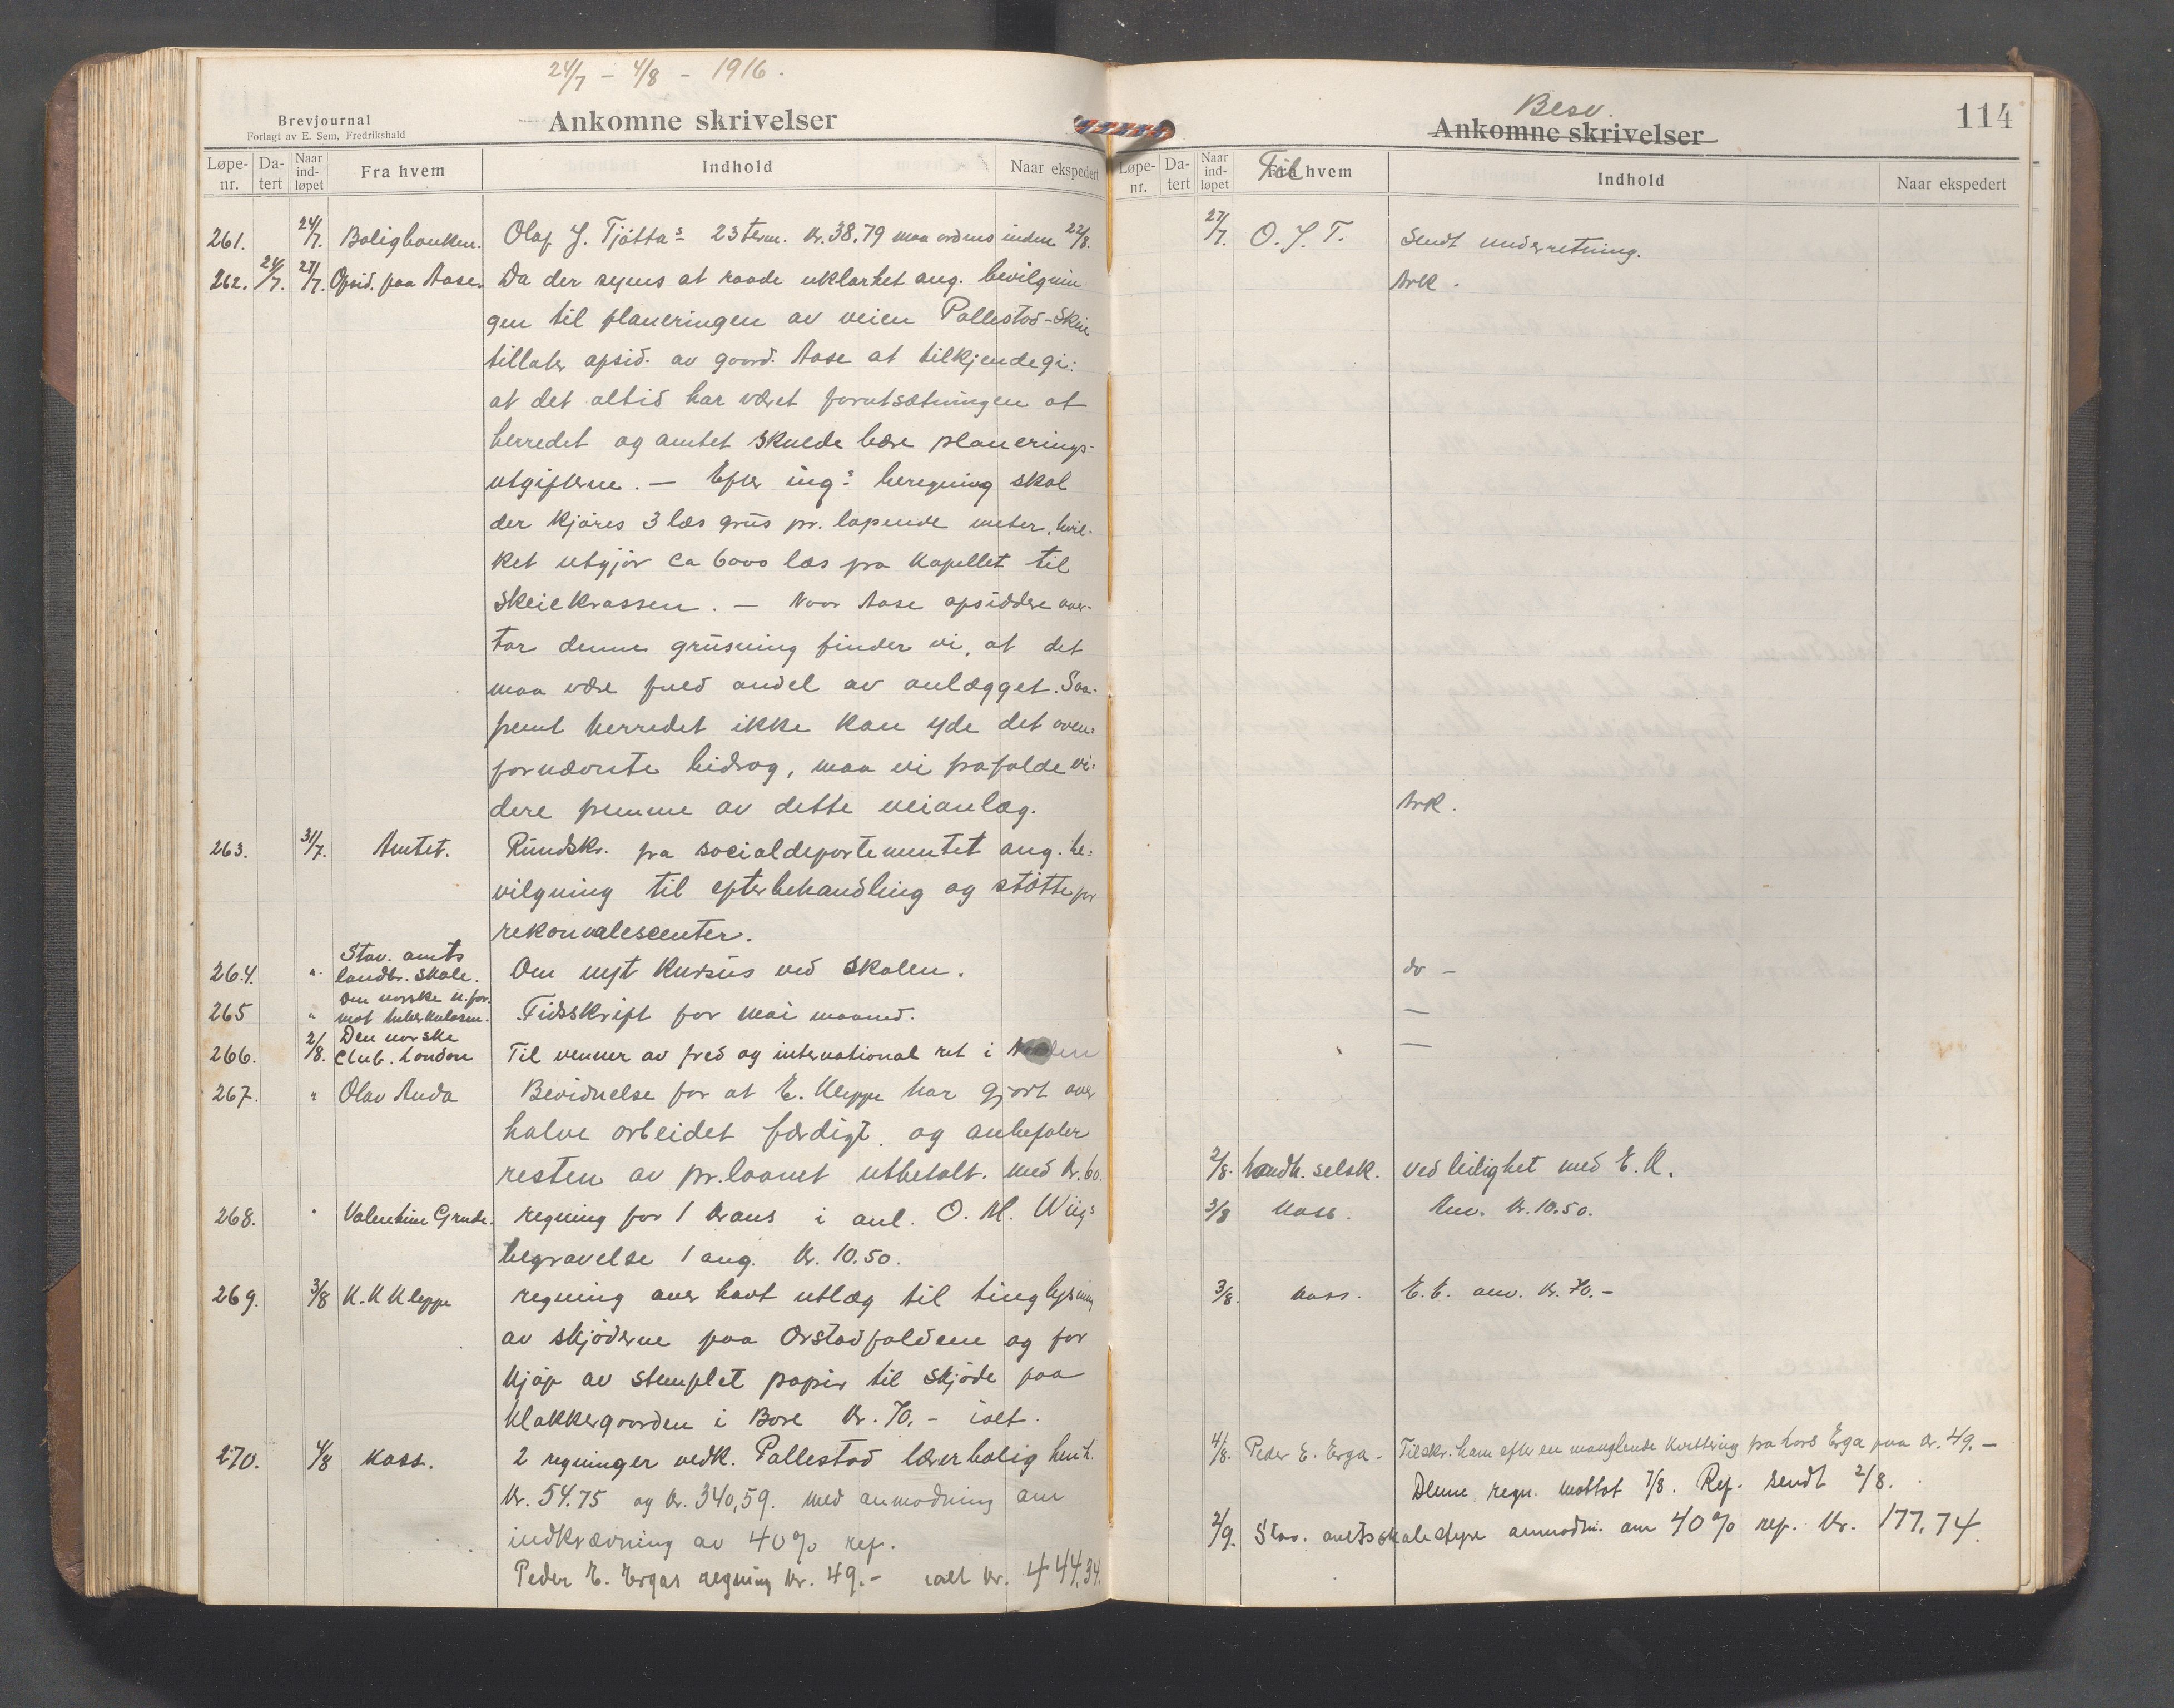 24/7 – 4/8 – 1916.
Brevjournal
Forlagt av E. Sem, Fredrikshald
Ankomne skrivelser
Løpe-nr. Da-tert Naar ind-løpet Fra hvem Indhold Naar ekspedert
261. 24/7. Boligbanken. Olaf J. Tjøtta s 23 term. Kr. 38.79 maa ordnes inden 22/8.
262. 24/7. 27/7. Opsid. paa Aase. Da der synes at raade uklarhet ang. bevilgnin
gen til planeringen av veien Pollestad-Skeie
tillater opsid. av gaard. Aase at tilkjendegi:
at det altid har været forutsætningen at
herredet og amtet skulde bære planerings-
utgifterne. — Efter ing s beregning skal
der kjøres 3 læs grus pr. løpende meter, hvil-
ket utgjør ca 6000 læs fra Kapellet til
Skeiekrossen. — Naar Aase opsiddere over-
tar denne grusning finder vi, at det
maa være fuld andel av anlægget. Saa-
fremt herredet ikke kan yde det oven-
fornævnte bidrag, maa vi frafalde vi-
dere fremme av dette veianlæg.
263. 31/7. Amtet. Rundskr. fra socialdepartementet ang. be-
vilgning til efterbehandling og støtte for
rekonvalescenter.
264. " Stav. amts landbr. skole. Om nyt kursus ved skolen.
265 " Den norske n. for. mot tuberkulosen. Tidsskrift for mai maaned.
266. 2/8. Den norske Club. London Til venner av fred og international ret i Norden
267. " Olav Anda Bevidnelse for at E. Kleppe har gjort over
halve arbeidet færdigt, og anbefaler
resten av pr.laanet utbetalt. med Kr. 60.
268. " Valentine Grude. regning for 1 krans i anl. O. M. Wiigs
begravelse 1 aug. Kr. 10.50.
269. 3/8 K. K Kleppe regning over havt utlæg til tinglysning
av skjøderne paa Orstadfoldene og for
kjøp av stemplet papir til skjøde paa
Klokkergaarden i Bore Kr. 70.- ialt.
270. 4/8 Kass. 2 regninger vedk. Pollestad lærerbolig henh.
Kr. 54.75 og Kr. 340,59. med anmodning om
indkrævning av 40% ref.
Peder E. Ergas regning Kr. 49.- ialt Kr. 444,34.
114
Besv.
Ankomne skrivelser
Løpe-nr. Da-tert Naar ind-løpet Til hvem Indhold Naar ekspedert
27/7. O. J. T. Sendt underretning.
Ark.
Ark.
do –
—
—
2/8. Landh. selsk. ved leilighet med E. K.
3/8 Kass. Anv. Kr. 10.50.
3/8. Kass. E. E. anv. Kr. 70.-
4/8. Peder E. Erga - Tilskr. ham efter en manglende kvittering fra Lars Erga paa Kr. 49.-
Denne regn. mottat 7/8. Ref. sendt 2/8.
2/9. Stav. amtsskolestyre anmodn. om 40% ref. Kr. 177,74.